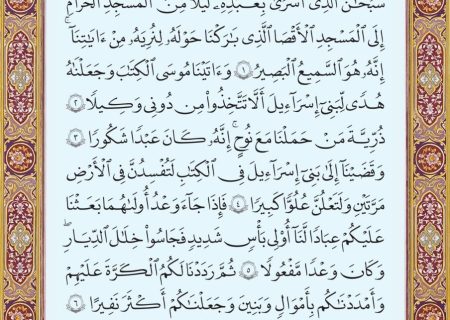 سُبْحَٰنَ ٱلَّذِىٓ أَسْرَىٰ بِعَبْدِهِۦ لَيْلًا مِّنَ ٱلْمَسْجِدِ ٱلْحَرَامِ
إِلَى ٱلْمَسْجِدِ ٱلْأَقْصَا ٱلَّذِى بَٰرَكْنَا حَوْلَهُۥ لِنُرِيَهُۥ مِنْ ءَايَٰتِنَآ ۚ
إِنَّهُۥ هُوَ ٱلسَّمِيعُ ٱلْبَصِيرُ ١ وَءَاتَيْنَا مُوسَى ٱلْكِتَٰبَ وَجَعَلْنَٰهُ
هُدًى لِّبَنِىٓ إِسْرَٰٓءِيلَ أَلَّا تَتَّخِذُوا۟ مِن دُونِى وَكِيلًا ٢
ذُرِّيَّةَ مَنْ حَمَلْنَا مَعَ نُوحٍ ۚ إِنَّهُۥ كَانَ عَبْدًا شَكُورًا ٣
وَقَضَيْنَآ إِلَىٰ بَنِىٓ إِسْرَٰٓءِيلَ فِى ٱلْكِتَٰبِ لَتُفْسِدُنَّ فِى ٱلْأَرْضِ
مَرَّتَيْنِ وَلَتَعْلُنَّ عُلُوًّا كَبِيرًا ٤ فَإِذَا جَآءَ وَعْدُ أُولَىٰهُمَا بَعَثْنَا
عَلَيْكُمْ عِبَادًا لَّنَآ أُو۟لِى بَأْسٍ شَدِيدٍ فَجَاسُوا۟ خِلَٰلَ ٱلدِّيَارِ ۚ
وَكَانَ وَعْدًا مَّفْعُولًا ٥ ثُمَّ رَدَدْنَا لَكُمُ ٱلْكَرَّةَ عَلَيْهِمْ
وَأَمْدَدْنَٰكُم بِأَمْوَٰلٍ وَبَنِينَ وَجَعَلْنَٰكُمْ أَكْثَرَ نَفِيرًا ٦